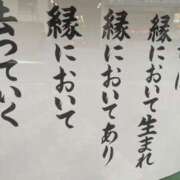 縁において生まれ
縁においてあり
縁において
去っていく